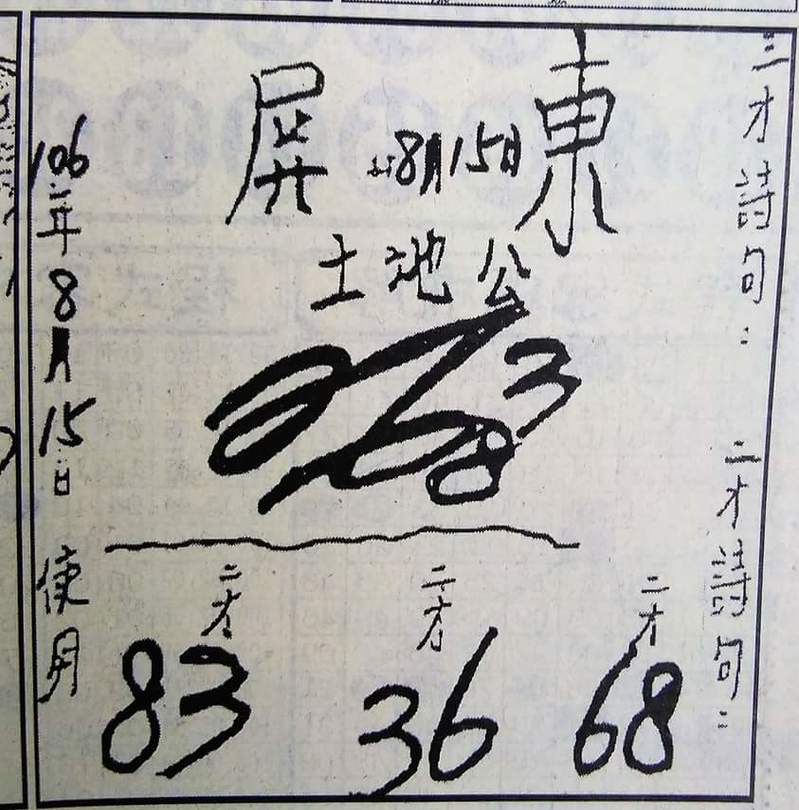 三才詩句：
二才詩句：
屏東
8月15日
土地公
3
8
二才 二才 二才
83 36 68
106年8月15日 使用